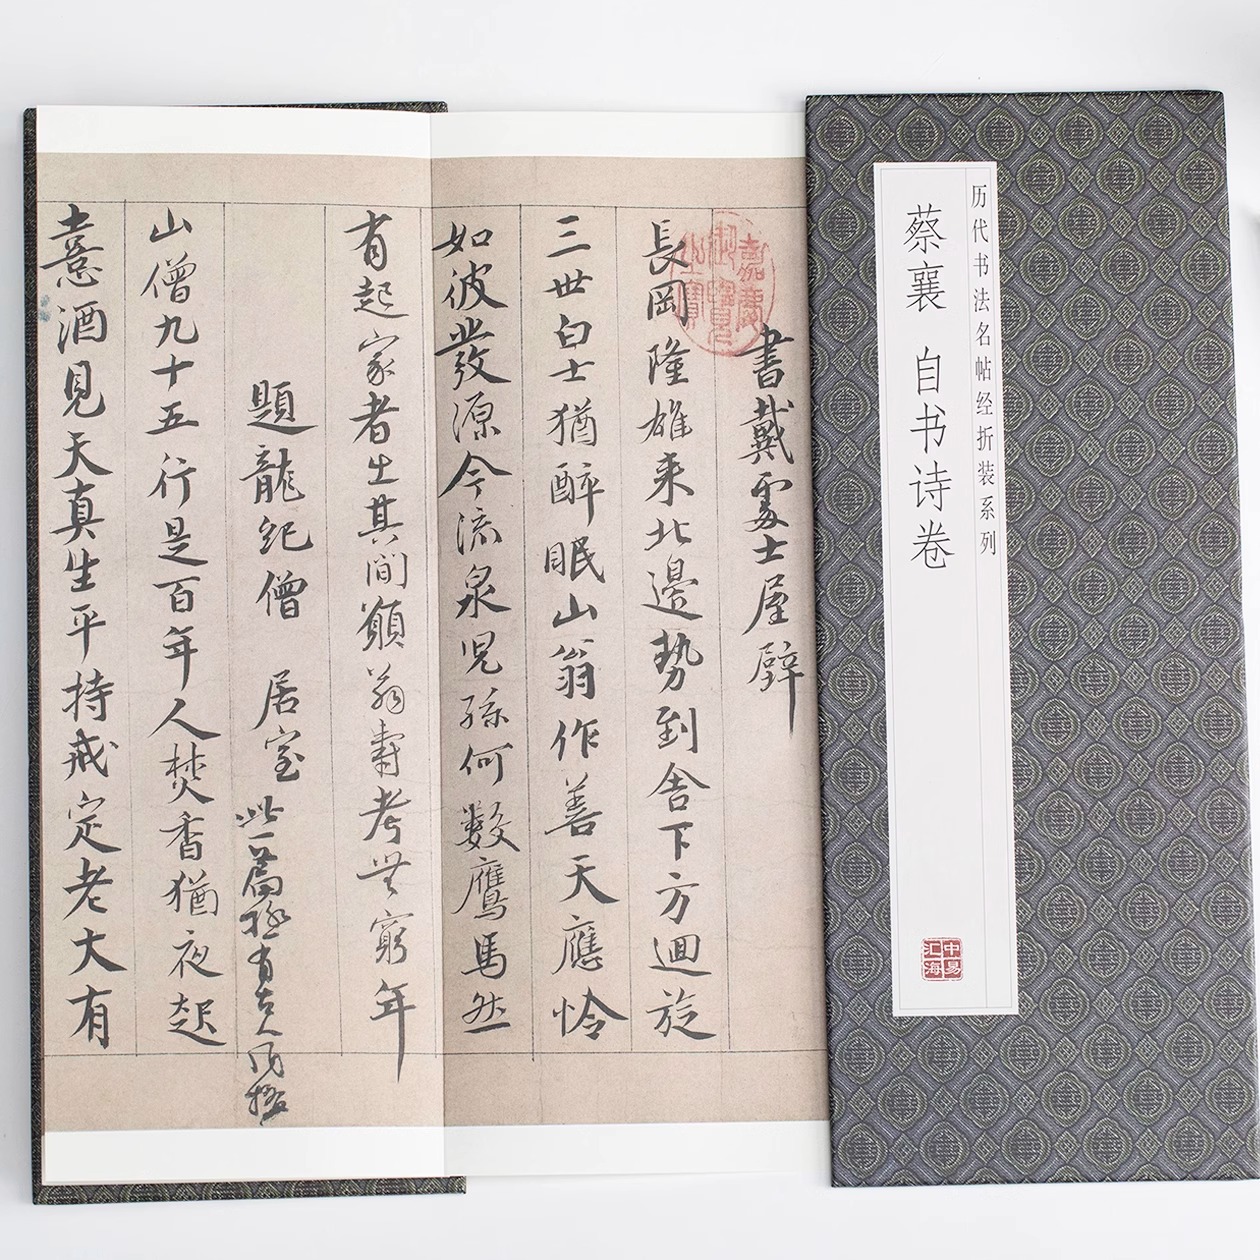 历代书法名帖经折装系列
蔡襄 自书诗卷
中易汇海
嘉慶御覽之寶
書戴處士屋壁
長岡隆雄来北邊勢到舍下方迴旋
三世白士猶醉眠山翁作善天應憐
如彼發源今流泉兒孫何數鷹馬然
有起家者出其間願翁壽考無窮年
題龍紀僧 居室 此一篇極有古人風格
山僧九十五行是百年人焚香猶夜起
憙酒見天真生平持戒定老大有